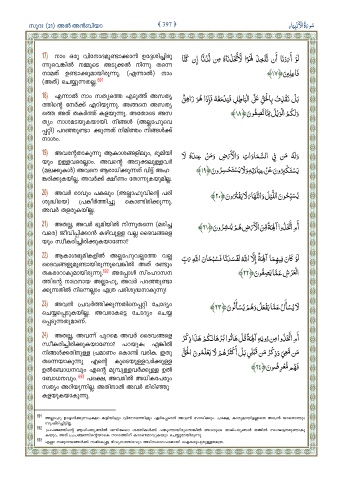 സൂറ: (21) അൽ അൻബിയാ
﴾ 397 ﴿
سورة الأنبياء
17) നാം ഒരു വിനോദമുണ്ടാക്കാൻ ഉദ്ദേശിച്ചിരു
ന്നുവെങ്കിൽ നമ്മുടെ അടുക്കൽ നിന്നു തന്നെ
നാമത് ഉണ്ടാക്കുമായിരുന്നു. (എന്നാൽ) നാം
(അത്) ചെയ്യുന്നതല്ല.
لَوْ أَرَدْنَا أَن نَّتَّخِذَ لَهْوًا لَّاتَّخَذْنَاهُ مِن لَّدُنَّا إِن كُنَّا
فَاعِلِينَ ﴿١٧﴾
18) എന്നാൽ നാം സത്യത്തെ എടുത്ത് അസത്യ
ത്തിന്റെ നേർക്ക് എറിയുന്നു. അങ്ങനെ അസത്യ
ത്തെ അത് തകർത്ത് കളയുന്നു. അതോടെ അസ
ത്യം നാശമടയുകയായി. നിങ്ങൾ (അല്ലാഹുവെ
പ്പറ്റി) പറഞ്ഞുണ്ടാക്കുന്നത് നിമിത്തം നിങ്ങൾക്ക്
നാശം.
بَلْ نَقْذِفُ بِالْحَقِّ عَلَى الْبَاطِلِ فَيَدْمَغُهُ فَإِذَا هُوَ زَاهِقٌ
وَلَكُمُ الْوَيْلُ مِمَّا تَصِفُونَ ﴿١٨﴾
19) അവന്റേതാകുന്നു ആകാശങ്ങളിലും, ഭൂമിയി
ലും ഉള്ളവരെല്ലാം. അവന്റെ അടുക്കലുള്ളവർ
(മലക്കുകൾ) അവനെ ആരാധിക്കുന്നത് വിട്ട് അഹ
ങ്കരിക്കുകയില്ല, അവർക്ക് ക്ഷീണം തോന്നുകയുമില്ല.
وَلَهُ مَن فِي السَّمَاوَاتِ وَالْأَرْضِ وَمَنْ عِندَهُ لَا
يَسْتَكْبِرُونَ عَنْ عِبَادَتِهِ وَلَا يَسْتَحْسِرُونَ ﴿١٩﴾
20) അവർ രാവും പകലും (അല്ലാഹുവിന്റെ പരി
ശുദ്ധിയെ) പ്രകീർത്തിച്ചു കൊണ്ടിരിക്കുന്നു.
അവർ തളരുകയില്ല.
يُسَبِّحُونَ اللَّيْلَ وَالنَّهَارَ لَا يَفْتُرُونَ ﴿٢٠﴾
21) അതല്ല, അവർ ഭൂമിയിൽ നിന്നുതന്നെ (മരിച്ച
വരെ) ജീവിപ്പിക്കാൻ കഴിവുള്ള വല്ല ദൈവങ്ങളെ
യും സ്വീകരിച്ചിരിക്കുകയാണോ?
أَمِ اتَّخَذُوا آلِهَةً مِّنَ الْأَرْضِ هُمْ يُنشِرُونَ ﴿٢١﴾
22) ആകാശഭൂമികളിൽ അല്ലാഹുവല്ലാത്ത വല്ല
ദൈവങ്ങളുമുണ്ടായിരുന്നുവെങ്കിൽ അത് രണ്ടും
തകരാറാകുമായിരുന്നു. അപ്പോൾ സിംഹാസന
ത്തിന്റെ നാഥനായ അല്ലാഹു, അവർ പറഞ്ഞുണ്ടാ
ക്കുന്നതിൽ നിന്നെല്ലാം എത്ര പരിശുദ്ധനാകുന്നു!
لَوْ كَانَ فِيهِمَا آلِهَةٌ إِلَّا اللَّهُ لَفَسَدَتَا فَسُبْحَانَ اللَّهِ رَبِّ
الْعَرْشِ عَمَّا يَصِفُونَ ﴿٢٢﴾
23) അവൻ പ്രവർത്തിക്കുന്നതിനെപ്പറ്റി ചോദ്യം
ചെയ്യപ്പെടുകയില്ല. അവരാകട്ടെ ചോദ്യം ചെയ്യ
പ്പെടുന്നതുമാണ്.
لَا يُسْأَلُ عَمَّا يَفْعَلُ وَهُمْ يُسْأَلُونَ ﴿٢٣﴾
24) അതല്ല, അവന്ന് പുറമെ അവർ ദൈവങ്ങളെ
സ്വീകരിച്ചിരിക്കുകയാണോ? പറയുക: എങ്കിൽ
നിങ്ങൾക്കതിന്നുള്ള പ്രമാണം കൊണ്ട് വരിക. ഇതു
തന്നെയാകുന്നു എന്റെ കൂടെയുള്ളവർക്കുള്ള
ഉൽബോധനവും എന്റെ മുമ്പുള്ളവർക്കുള്ള ഉൽ
ബോധനവും. പക്ഷെ, അവരിൽ അധികപേരും
സത്യം അറിയുന്നില്ല. അതിനാൽ അവർ തിരിഞ്ഞു
കളയുകയാകുന്നു.
أَمِ اتَّخَذُوا مِن دُونِهِ آلِهَةً قُلْ هَاتُوا بُرْهَانَكُمْ هَذَا ذِكْرُ
مَن مَّعِيَ وَذِكْرُ مَن قَبْلِي بَلْ أَكْثَرُهُمْ لَا يَعْلَمُونَ الْحَقَّ
فَهُم مُّعْرِضُونَ ﴿٢٤﴾